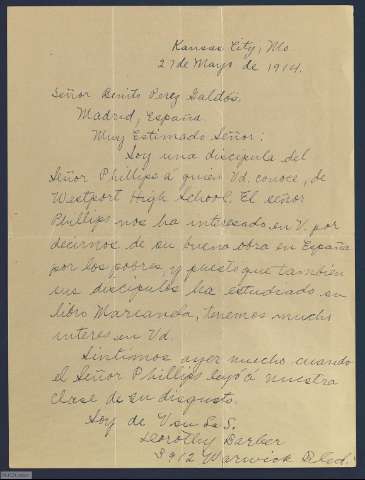 Kansas City, Mo
27 de Mayo de 1914.
Señor Benito Perez Galdós.
Madrid, España.
Muy Estimado Señor:
Soy una discipula del
Señor Phillips á quien Vd. conoce, de
Westport High School. El señor
Phillips nos ha interesado en V. por
decirnos de su buena obra en España
por los pobres, y puesto que tambien
sus discipulos ha estudiado su
libro Marianela, tenemos mucho
interes en Vd.
Sintimos ayer mucho cuando
el Señor Phillips leyó á nuestra
clase de su disgusto.
Soy de V su S. S.
Dorothy Barber
3912 Warwick Blvd.